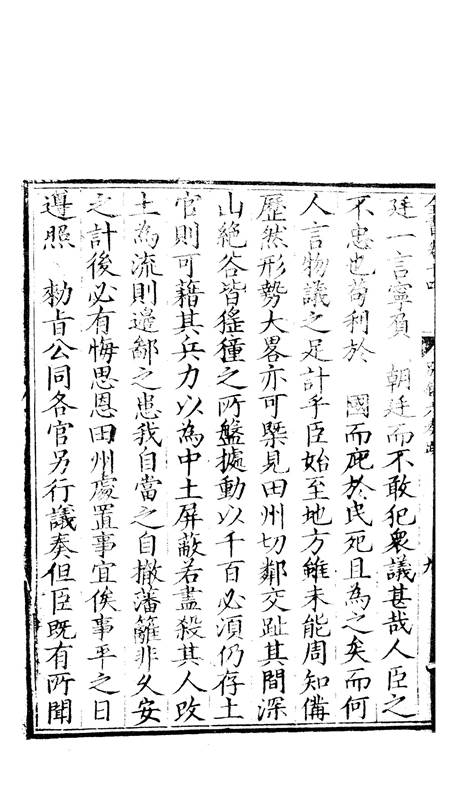 廷一言寧負　朝廷而不敢犯衆議甚哉人臣之
不忠也苟利於　國而庇於民死且為之矣而何
人言物議之足計乎臣始至地方雖未能周知備
歷然形勢大畧亦可槩見田州切鄰交趾其間深
山絶谷皆猺獞之所盤據動以千百必須仍存土
官則可藉其兵力以為中土屏蔽若盡殺其人改
土為流則邊鄙之患我自當之自撤藩籬非久安
之計後必有悔思恩田州處置事宜俟事平之日
遵照　勑旨公同各官另行議奏但臣既有所聞